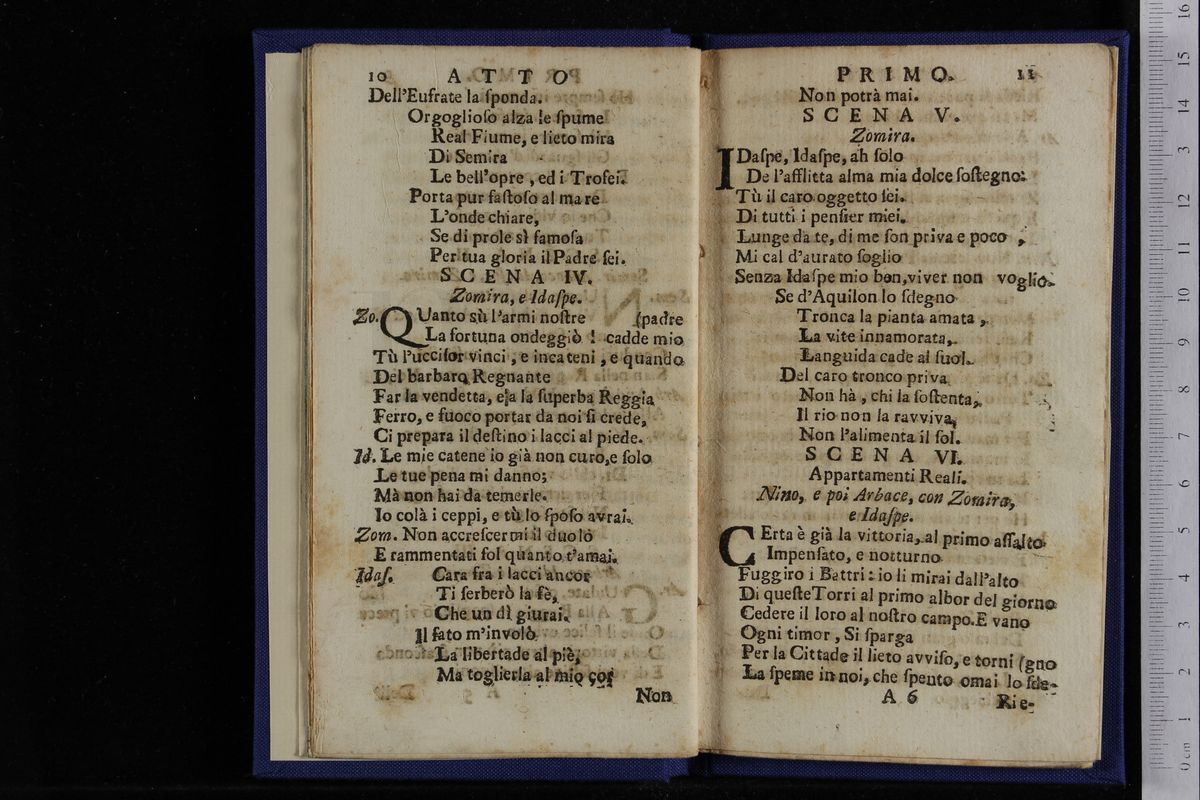 10 A T T O
Dell'Eufrate la ſponda.
Orgoglioſo alza le ſpume
Real Fiume, e lieto mira
Di Semira
Le bell'opre , ed i Trofei.
Porta pur faſtoſo al mare
L'onde chiare,
Se di prole sì famoſa
Per tua gloria il Padre ſei.
S C E N A IV.
Zomira, e Idaſpe.
Zo. QUanto sù l'armi noſtre (padre
La fortuna ondeggiò ! cadde mio
Tù l'ucciſor vinci , e incateni , e quando
Del barbaro Regnante
Far la vendetta, e a la ſuperba Reggia
Ferro, e fuoco portar da noi ſi crede,
Ci prepara il deſtino i lacci al piede.
Id. Le mie catene io già non curo, e ſolo
Le tue pena mi danno;
Mà non hai da temerle.
Io colà i ceppi, e tù lo ſpoſo avrai.
Zom. Non accreſcermi il duolo
E rammentati ſol quanto t'amai.
Idaſ. Cara fra i lacci ancor
Ti ſerberò la fè,
Che un dì giurai.
Il fato m'involò
La libertade al piè,
Ma toglierla al mio cor
Non
P R I M O. 11
Non potrà mai.
S C E N A V.
Zomira.
IDaſpe, Idaſpe, ah ſolo
De l'afflitta alma mia dolce ſoſtegno:
Tù il caro oggetto ſei.
Di tutti i penſier miei.
Lunge da te, di me ſon priva e poco ,
Mi cal d'aurato ſoglio
Senza Idaſpe mio ben, viver non voglio.
Se d'Aquilon lo ſdegno
Tronca la pianta amata ,
La vite innamorata,
Languida cade al ſuol.
Del caro tronco priva
Non hà , chi la ſoſtenta,
Il rio non la ravviva,
Non l'alimenta il ſol.
S C E N A VI.
Appartamenti Reali.
Nino, e poi Arbace, con Zomira,
e Idaſpe.
CErta è già la vittoria, al primo aſſalto
Impenſato, e notturno
Fuggiro i Battri : io li mirai dall'alto
Di queſte Torri al primo albor del giorno
Cedere il loro al noſtro campo. E vano
Ogni timor , Si ſparga
Per la Cittade il lieto avviſo, e torni (gno
La ſpeme in noi, che ſpento omai lo ſde-
A 6 Rie-